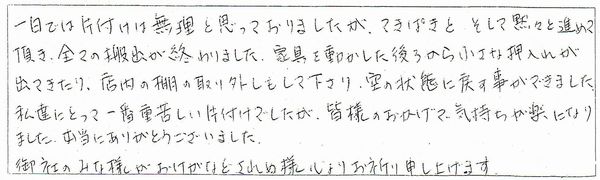 一日では片付けは無理と思っておりましたが、てきぱきと そして黙々と進めて
頂き、全ての搬出が終わりました。家具を動かした後ろから小さな押入れが
出てきたり、店内の棚の取り外しもして下さり、空の状態に戻す事ができました。
私達にとって一番重苦しい片付けでしたが、皆様のおかげで、気持ちが楽になり
ました。本当にありがとうございました。
御社のみな様がおけがなどされぬ様、心よりお祈り申し上げます。